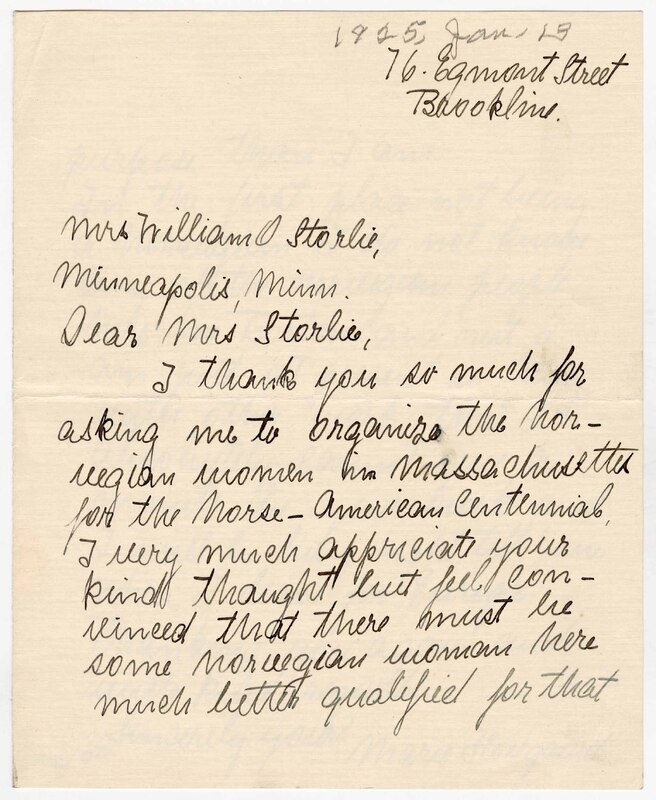 1925, Jan. 13
76. Egmont Street
Brookline.
Mrs William O Storlie,
Minneapolis, Minn.
Dear Mrs Storlie,
I thank you so much for
asking me to organize the Nor-
wegian women in Massachusetts
for the Norse-American Centennial,
I very much appriciate your
kind thought but feel con-
vinced that there must be
some Norwegian woman here
much better qualified for that